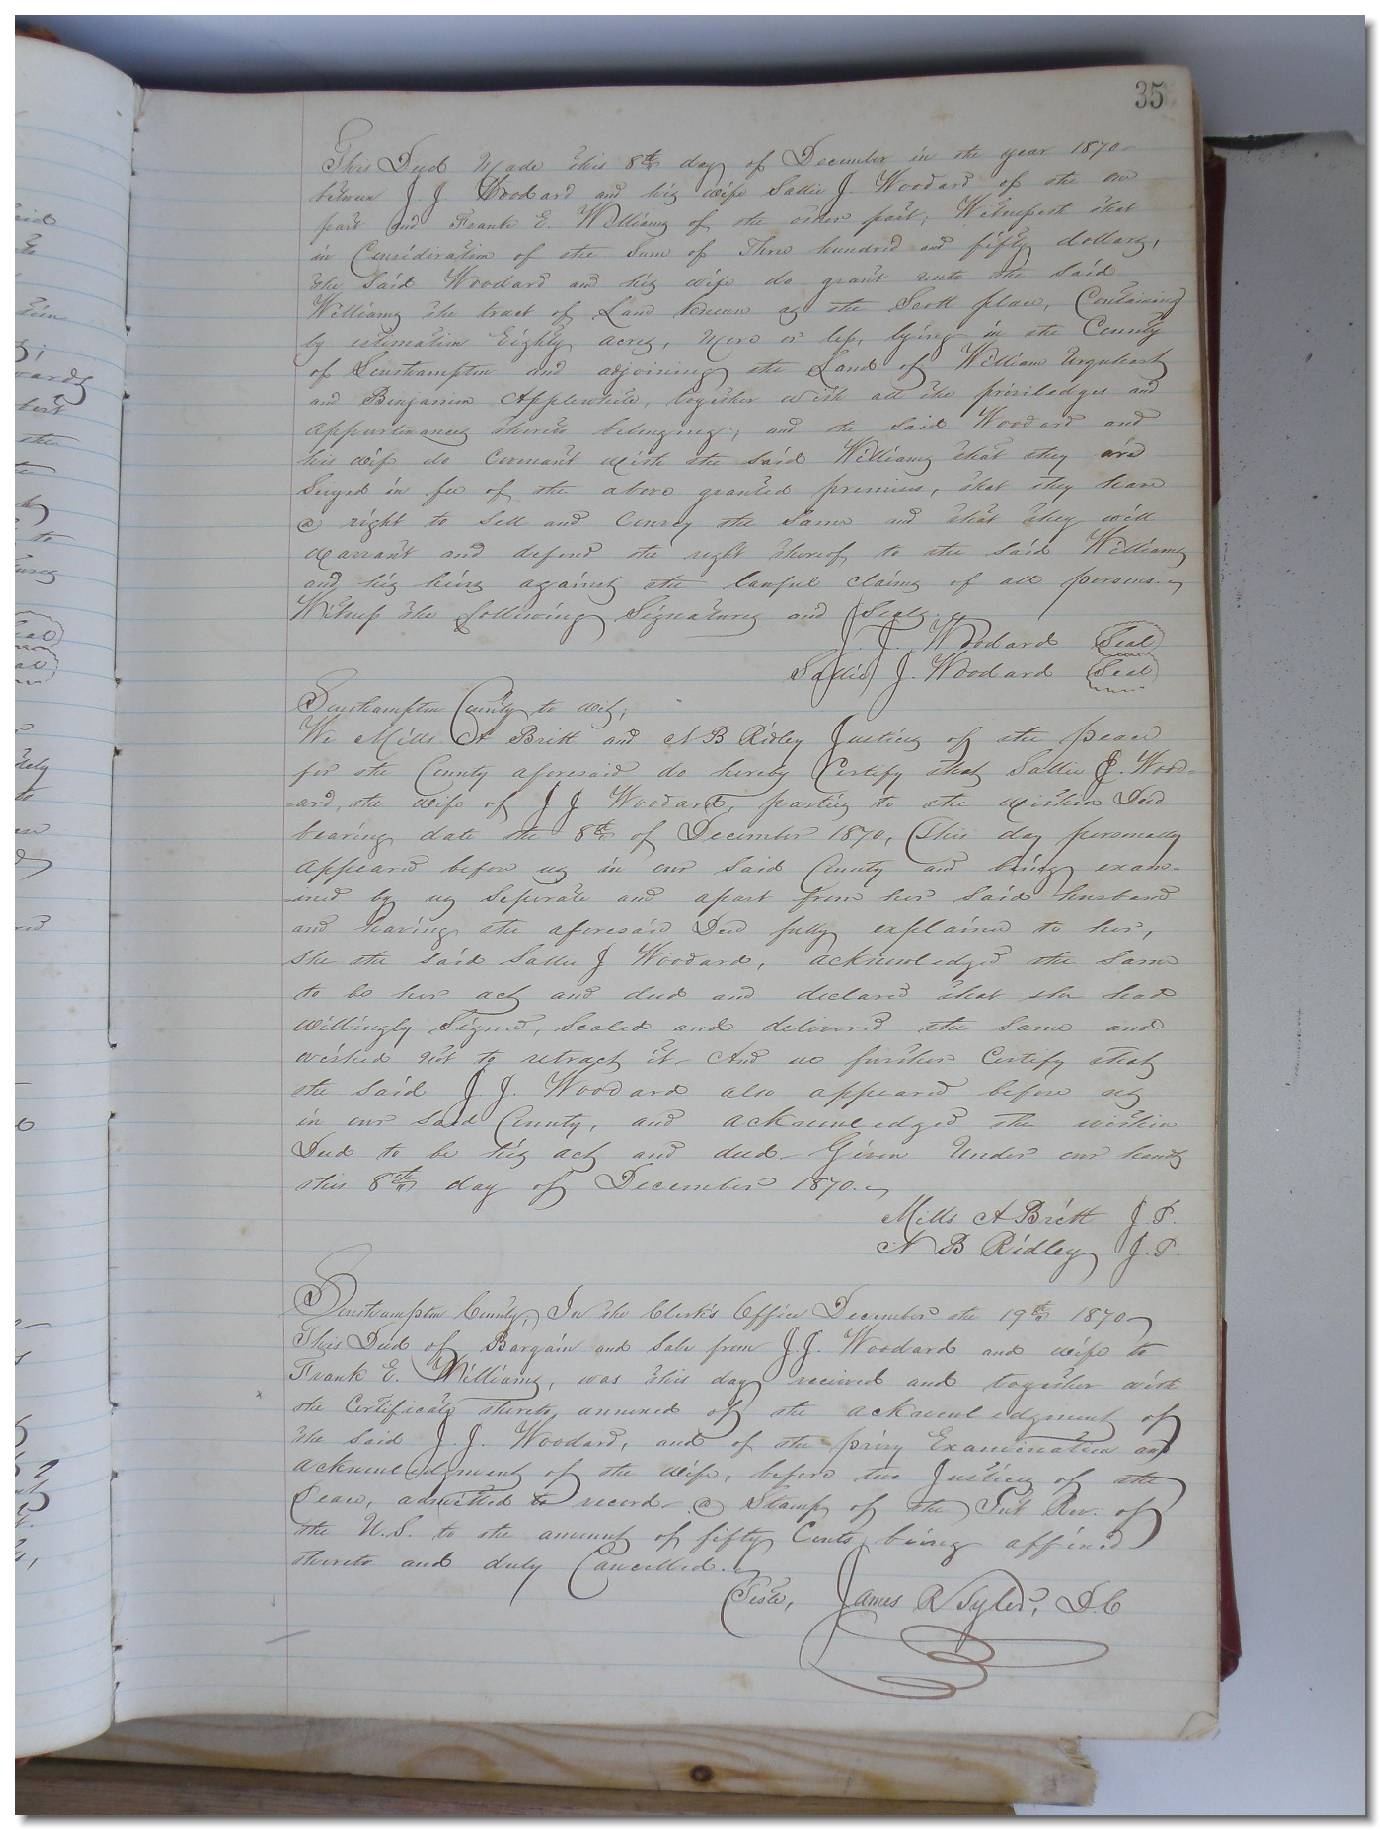 35
This Deed Made this 8th day of December in the year 1870
between J J Woodard and his wife Sallie J Woodard of the one
part and Frank E. Williams of the other part, Witnesseth that
in Consideration of the Sum of Three hundred and fifty dollars,
the Said Woodard and his wife do grant unto the Said
Williams the tract of Land known as the Scott place, Containing
by estimation Eighty acres, More or less, lying in the County
of Southampton and adjoining the Land of William Urquhart
and Benjamin Applewhite, together with all the priviledges and
appurtenances thereto belonging; and the Said Woodard and
his wife do Covenant with the Said Williams that they are
Seized in fee of the above granted premises, that they have
a right to Sell and Convey the Same and that they will
Warrant and defend the right thereof to the Said Williams
and his heirs against the lawful claims of all persons.
Witness the following Signatures and Seals.
J. J. Woodard Seal
Sallie J. Woodard Seal
Southampton County to wit;
We Mills A Britt and N B Ridley Justices of the peace
for the County aforesaid do hereby Certify that Sallie J. Wood-
-ard, the wife of J J Woodard, parties to the within Deed
bearing date the 8th of December 1870, this day personally
appeared before us in our Said County and being exam-
-ined by us Seperate and apart from her Said husband
and having the aforesaid Deed fully explained to her,
She the Said Sallie J Woodard, acknowledged the Same
to be her act and deed and declared that she had
Willingly Signed, Sealed and delivered the Same and
wished not to retract it - And we further Certify that
the Said J. J. Woodard also appeared before us
in our Said County, and acknowledged the within
Deed to be his act and deed - Given Under our hands
this 8th day of December 1870.
Mills A Britt J P.
N B Ridley J. P.
Southampton County, In the Clerk's Office December the 19th 1870
This Deed of Bargain and Sale from J. J. Woodard and wife to
Frank E. Williams, was this day received and together with
the Certificate thereto annexed of the acknowledgment of
the Said J. J. Woodard, and of the privy Examination and
acknowledgment of the Wife, before two Justices of the
Peace, admitted to record - a Stamp of the Int Rev. of
the U.S. to the amount of fifty Cents being affixed
thereto and duly Cancelled.
Teste, James R Tyler, D.C